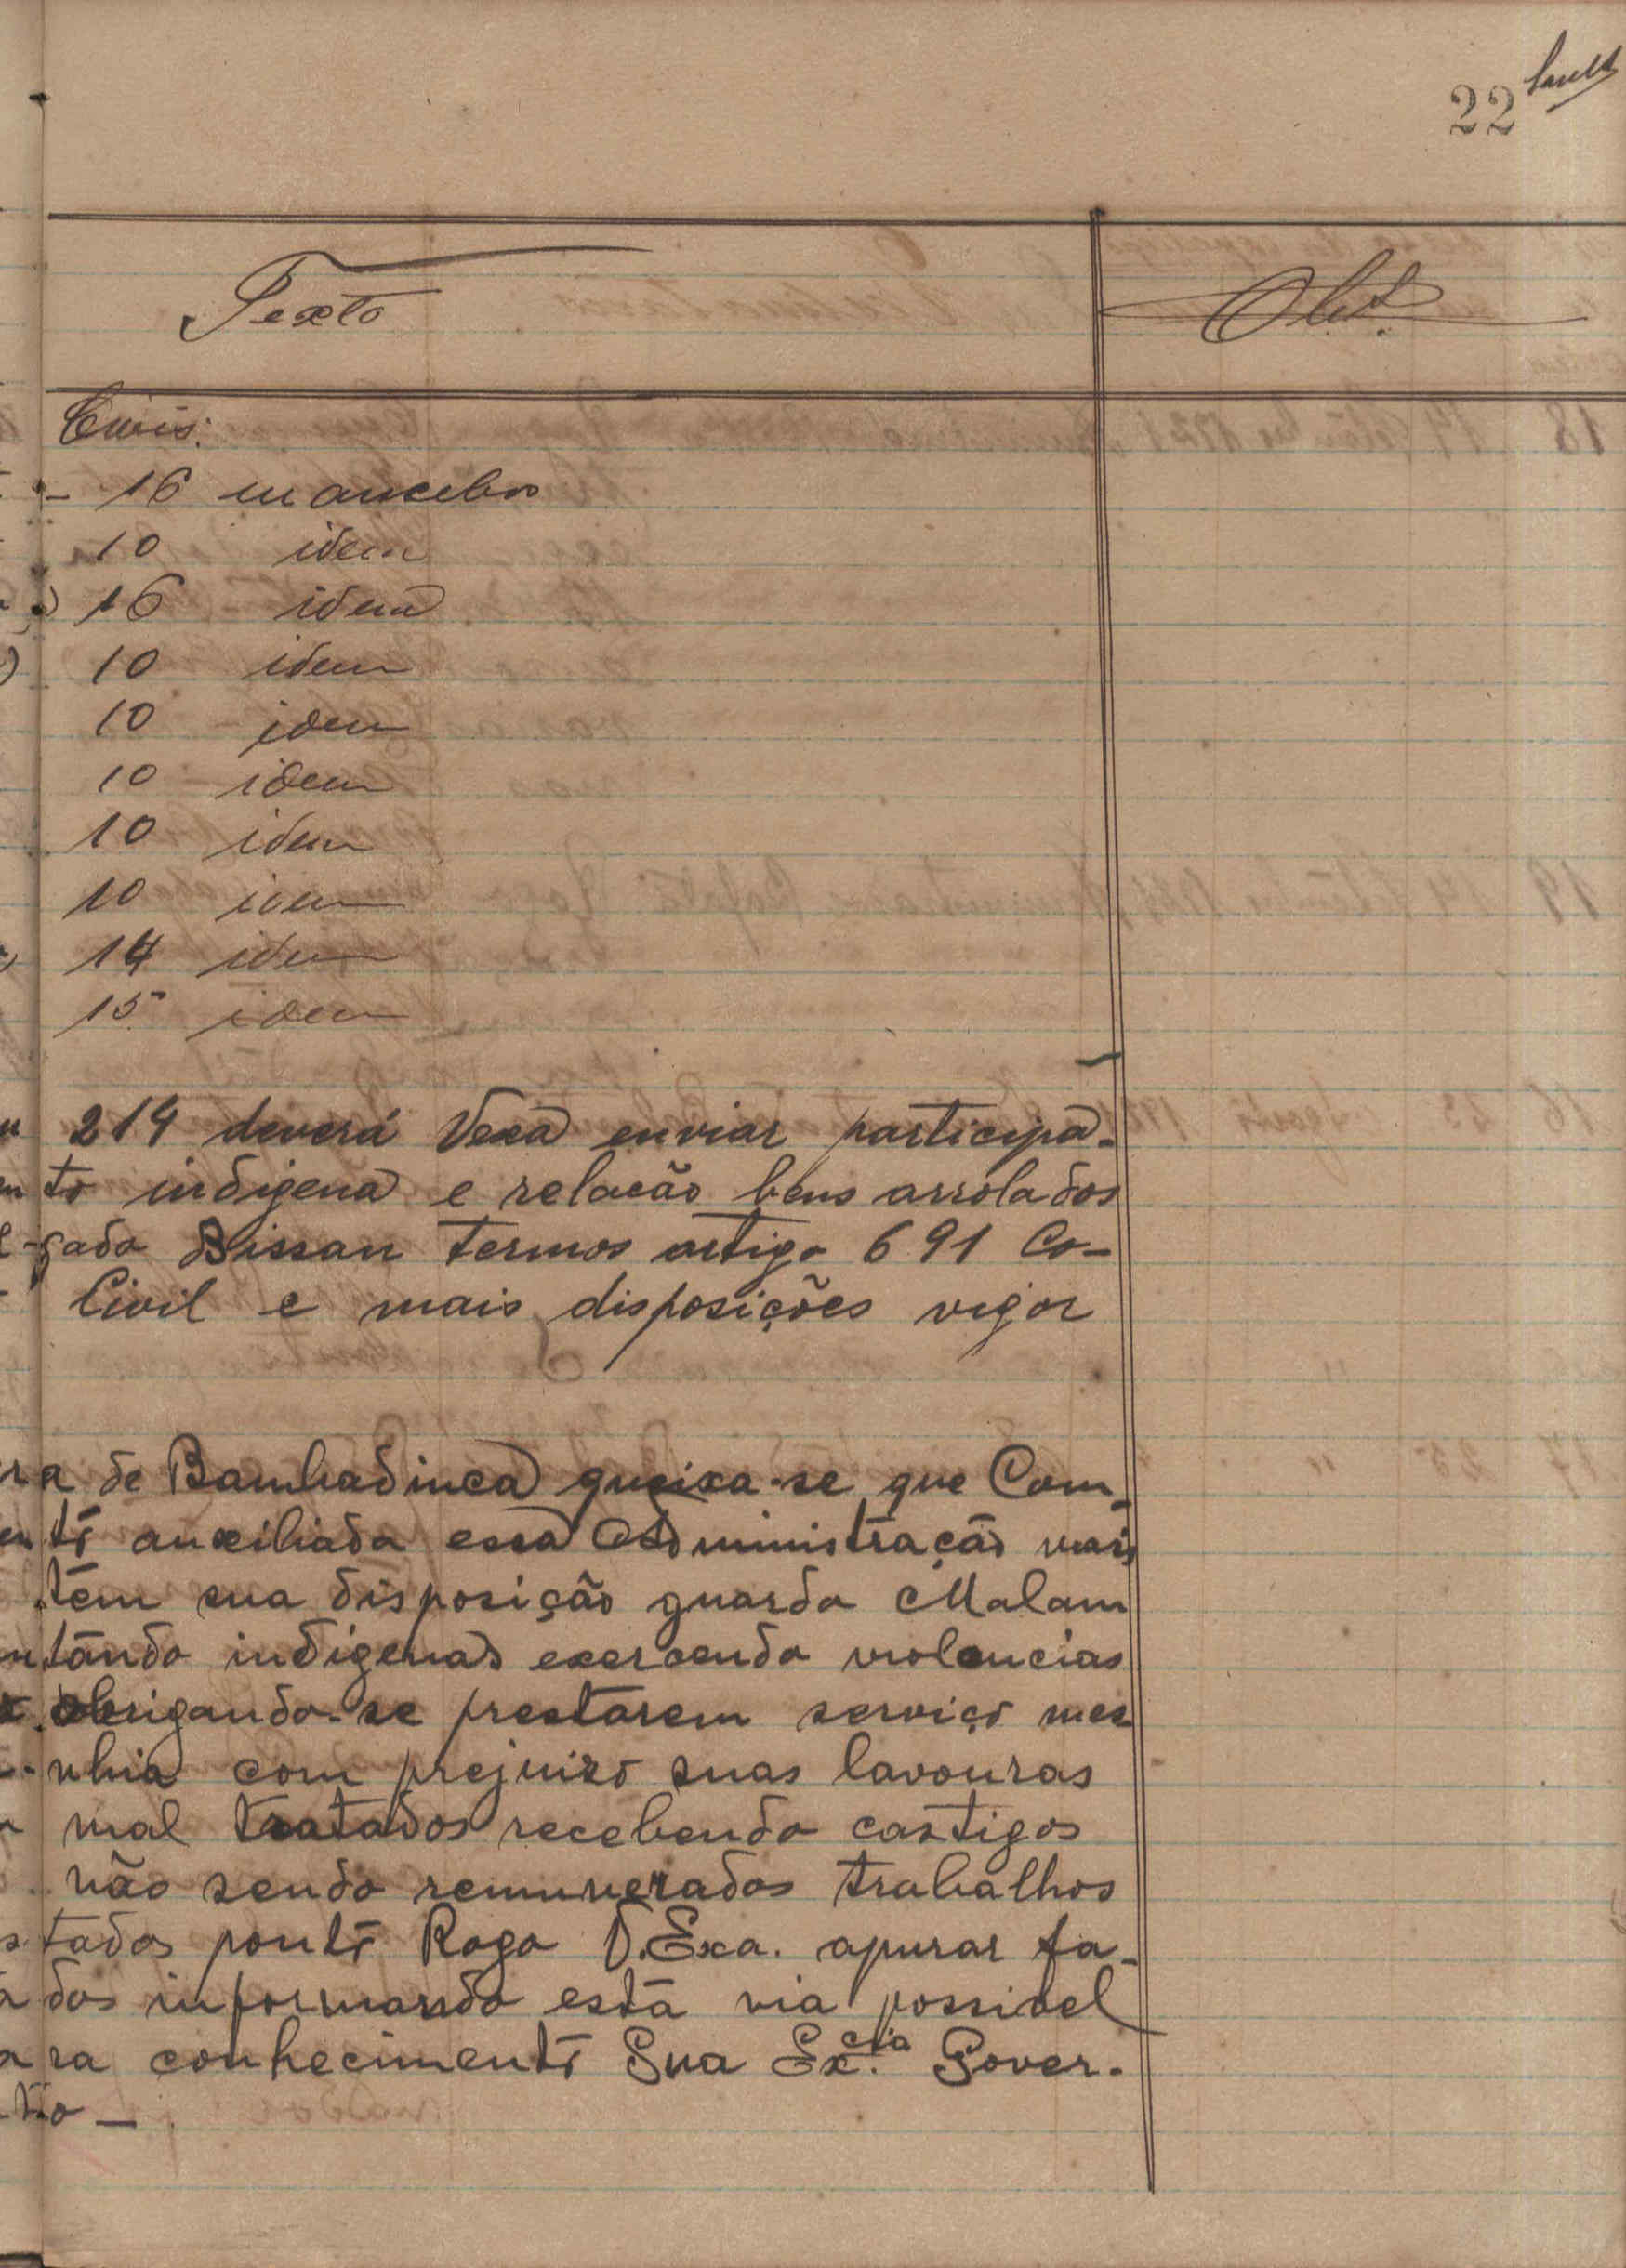 22
Texto
Obs.
Civis:
- 16 mancebos
10 idem
16 idem
10 idem
10 idem
10 idem
10 idem
10 idem
14 idem
15 idem
214 deverá Vexa enviar participa-
to indigena e relacão bens arrolados
gado Bissau termos artigo 691 Co-
Civil e mais disposições vigor
ra de Bambadinca queixa-se que Com-
to auxiliada essa Administração
têm sua disposição guarda Malam
tando indigenas exercendo violencias
obrigando-se prestarem serviço mes
nhia com prejuizo suas lavouras
mal tratados recebendo castigos
não sendo remunerados trabalhos
tados ponto Rogo V. Exa. apurar fa-
dos informando esta via possivel
ra conhecimento Sua Ex.cia Gover-
to —